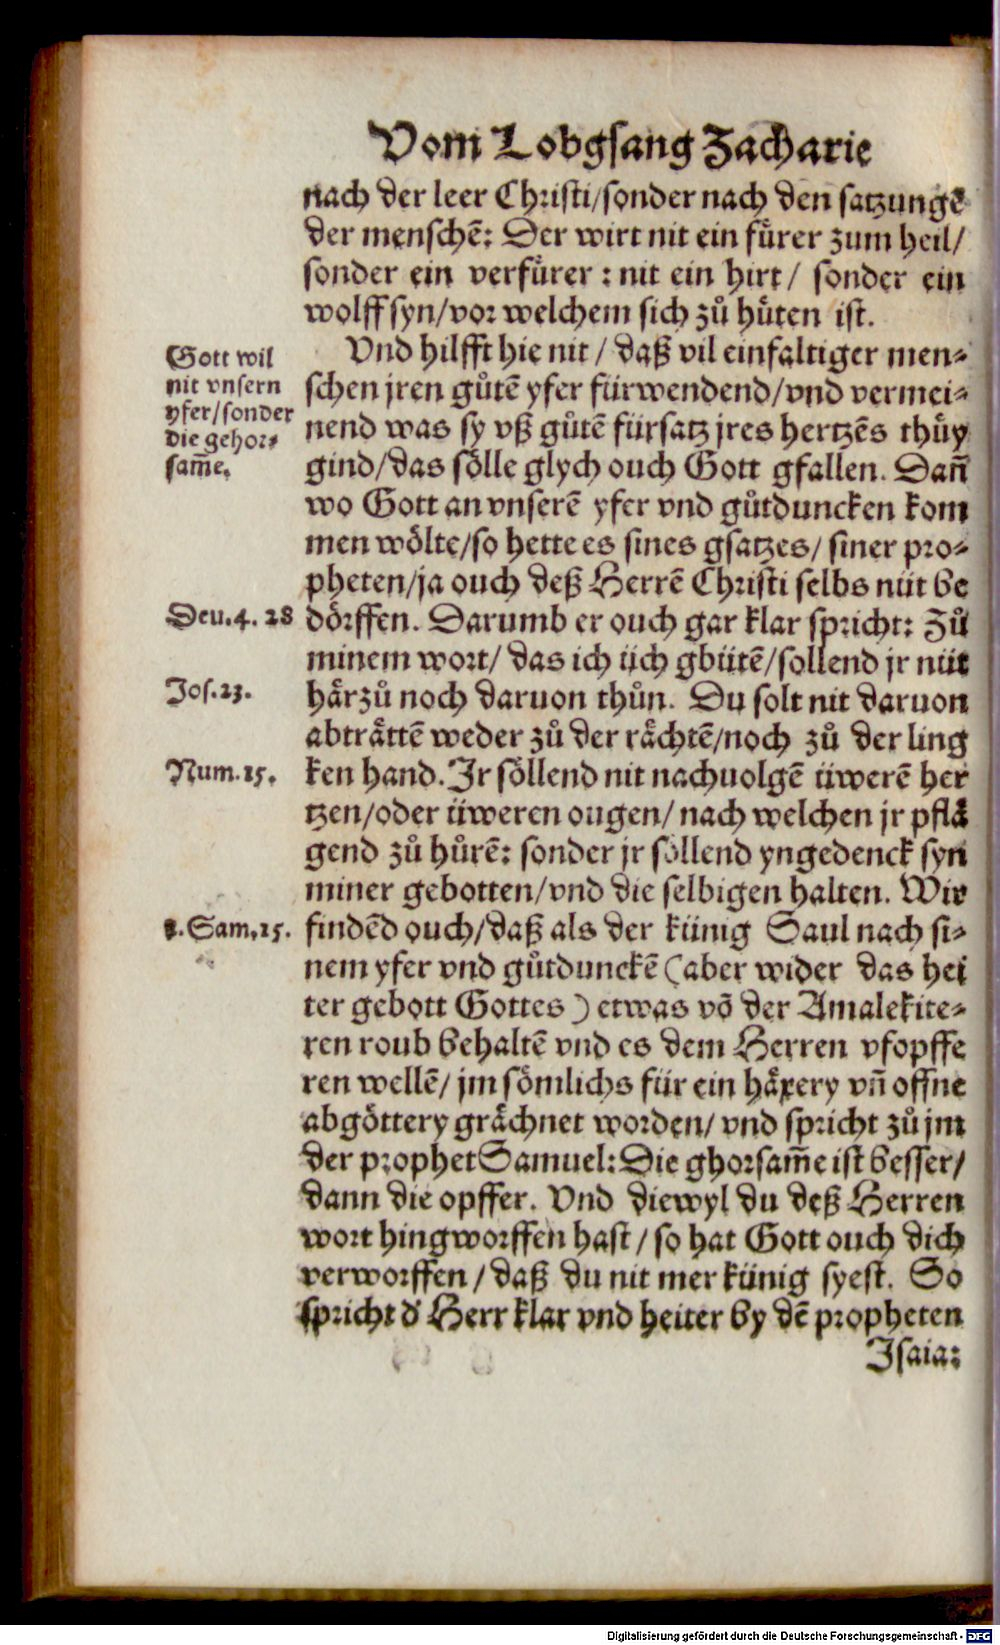 Vom Lobgsang Zacharie
nach der leer Christi/sonder nach den satzungē
der menschē: Der wirt nit ein fuͤrer zum heil/
sonder ein verfuͤrer: nit ein hirt/ sonder ein
wolff syn/vor welchem sich zuͦ huͤten ist.
Vnd hilfft hie nit/ daß vil einfaltiger men⸗
schen jren guͦtē yfer fürwendend/vnd vermei⸗
nend was sy vß guͦtē fürsatz jres hertzēs thuͤy
gind/das soͤlle glych ouch Gott gfallen. Dañ
wo Gott an vnserē yfer vnd guͦtduncken kom
men woͤlte/so hette es sines gsatzes/ siner pro⸗
pheten/ja ouch deß Herrē Christi selbs nüt be
doͤrffen. Darumb er ouch gar klar spricht: Zuͦ
minem wort/ das ich üch gbütē/sollend jr nüt
haͤrzuͦ noch daruon thuͦn. Du solt nit daruon
abtraͤttē weder zuͦ der raͤchtē/noch zuͦ der ling
ken hand. Jr soͤllend nit nachuolgē üwerē her
tzen/oder üweren ougen/ nach welchen jr pflaͤ
gend zuͦ huͦrē: sonder jr soͤllend yngedenck syn
miner gebotten/vnd die selbigen halten. Wir
findēd ouch/daß als der künig Saul nach si⸗
nem yfer vnd guͦtdunckē (aber wider das hei
ter gebott Gottes) etwas võ der Amalekite⸗
ren roub behaltē vnd es dem Herren vfopffe
ren wellē/ jm soͤmlichs für ein haͤxery vñ offne
abgoͤttery graͤchnet worden/ vnd spricht zuͦ jm
der prophet Samuel: Die ghorsam̃e ist besser/
dann die opffer. Vnd diewyl du deß Herren
wort hingworffen hast/ so hat Gott ouch dich
verworffen/ daß du nit mer künig syest. So
spricht d' Herr klar vnd heiter by dē propheten
Jsaia:
Gott wil
nit vnsern
yfer/sonder
die gehor⸗
sam̃e.
Deu.4. 28
Jos.23.
Num.15.
1. Sam.15.
Digitalisierung gefördert durch die Deutsche Forschungsgemeinschaft - DFG